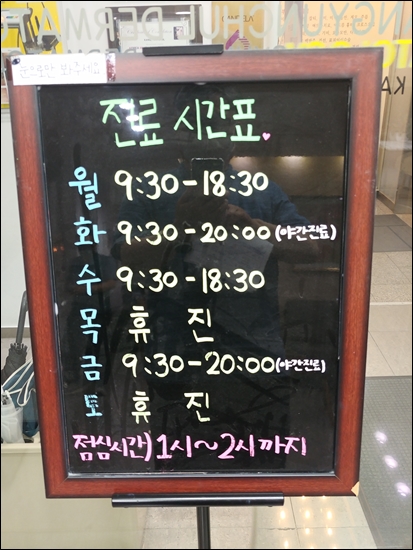 NGYUNCHUL DERMAT
눈으로만 봐주세요
진료 시간표
월 9:30-18:30
화 9:30-20:00 (야간진료)
수 9:30-18:30
목 휴 진
금 9:30-20:00 (야간진료)
토 휴 진
점심시간) 1시~2시까지